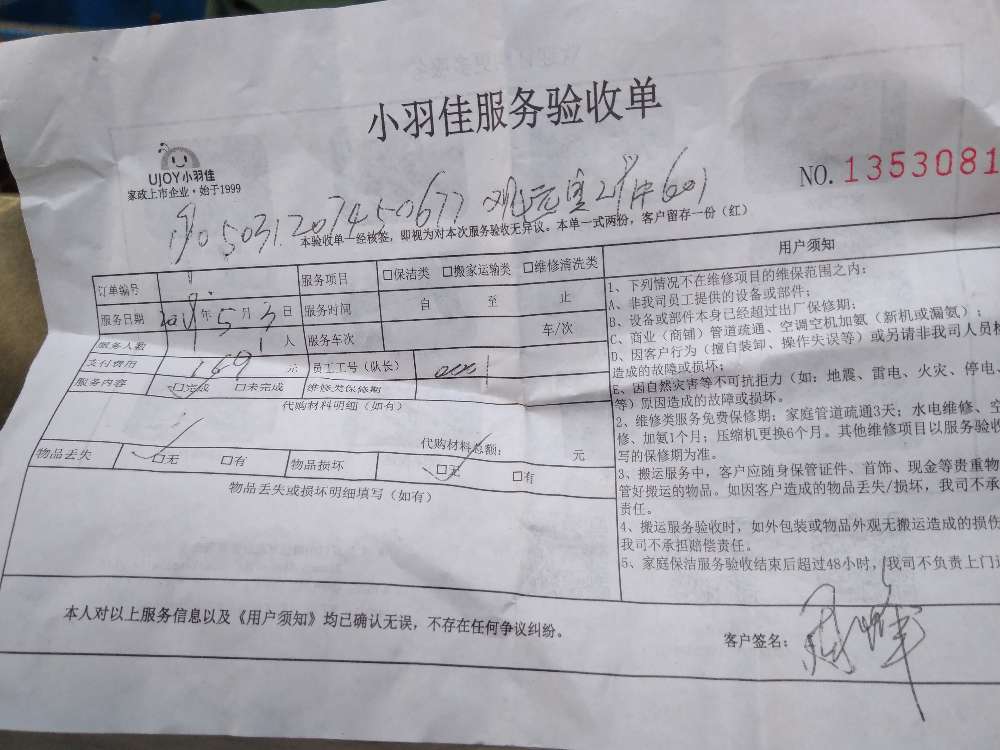 小羽佳服务验收单
UJOY小羽佳
家政上市企业·始于1999
NO. 1353081
本验收单一经核签，即视为对本次服务验收无异议。本单一式两份，客户留存一份（红）
订单编号 服务项目 □保洁类 □搬家运输类 □维修清洗类
服务日期 年5月3日 服务时间 自 至 止
服务人数 1人 服务车次 车/次
支付费用 169元 员工工号（队长） 0001
服务内容 □完成 □未完成 维修类保修期
代购材料明细（如有）
代购材料总额： 元
物品丢失 □无 □有 物品损坏 □无 □有
物品丢失或损坏明细填写（如有）
用户须知
1、下列情况不在维修项目的维保范围之内：
A、非我司员工提供的设备或部件；
B、设备或部件本身已经超过出厂保修期；
C、商业（商铺）管道疏通、空调空机加氨（新机或漏氨）；
D、因客户行为（擅自装卸、操作失误等）或另请非我司人员
造成的故障或损坏；
E、因自然灾害等不可抗拒力（如：地震、雷电、火灾、停电、
等）原因造成的故障或损坏。
2、维修类服务免费保修期；家庭管道疏通3天；水电维修、空
修、加氨1个月；压缩机更换6个月。其他维修项目以服务验收
写的保修期为准。
3、搬运服务中，客户应随身保管证件、首饰、现金等贵重物
管好搬运的物品。如因客户造成的物品丢失/损坏，我司不承
责任。
4、搬运服务验收时，如外包装或物品外观无搬运造成的损伤
我司不承担赔偿责任。
5、家庭保洁服务验收结束后超过48小时，我司不负责上门
本人对以上服务信息以及《用户须知》均已确认无误，不存在任何争议纠纷。
客户签名：